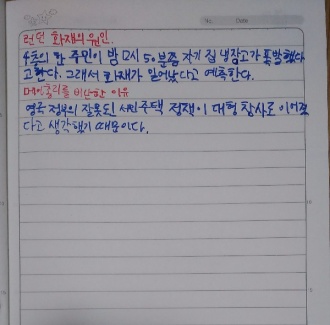 No. Date
런던 화재의 원인.
4층의 한 주민이 밤 12시 50분쯤 자기 집 냉장고가 폭발했다
고한다. 그래서 화재가 일어났다고 예측한다.
메이총리를 비난한 이유
영국 정부의 잘못된 서민주택 정책이 대형 참사로 이어졌
다고 생각했기 때문이다.